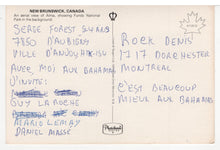 NEW BRUNSWICK, CANADA
An aerial view of Alma, showing Fundy National
Park in the background.
SERGE FOREST
7850 D'AUBIGNY
VILLE D'ANJOU
AVEC MOI AUX BAHAMAS
J'INVITE:
GUY LAROCHE
MARIO LEMAY
DANIEL MASSE
ROCK DENIS
DORCHESTER
MONTREAL
C'EST BEAUCOUP
MIEUX AUX BAHAMAS